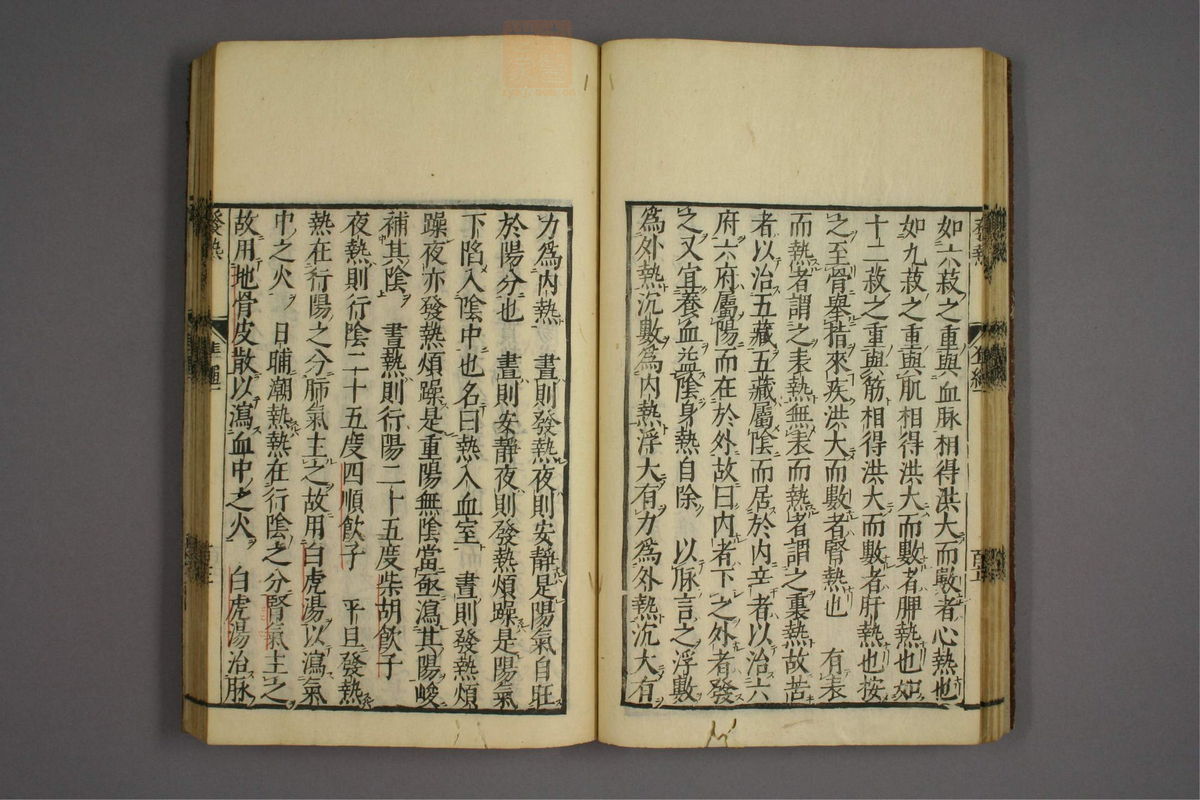 如六菽之重與血脉相得洪大而數者心熱也
如九菽之重與肌相得洪大而數者脾熱也如
十二菽之重與筋相得洪大而數者肝熱也按
之至骨舉指來疾洪大而數者腎熱也 有表
而熱者謂之表熱無表而熱者謂之裏熱故苦
者以治五藏五藏屬陰而居於内辛者以治六
府六府屬陽而在於外故曰内者下之外者發
之又宜養血益陰身熱自除 以脉言之浮數
爲外熱沉數爲内熱浮大有力爲外熱沉大有
力爲内熱 晝則發熱夜則安靜是陽氣自旺
於陽分也 晝則安靜夜則發熱煩躁是陽氣
下陷入陰中也名曰熱入血室 晝則發熱煩
躁夜亦發熱煩躁是重陽無陰當亟瀉其陽峻
補其陰 晝熱則行陽二十五度柴胡飲子
夜熱則行陰二十五度四順飲子 平旦發熱
熱在行陽之分肺氣主之故用白虎湯以瀉氣
中之火 日晡潮熱熱在行陰之分腎氣主之
故用地骨皮散以瀉血中之火 白虎湯治脉
發熱